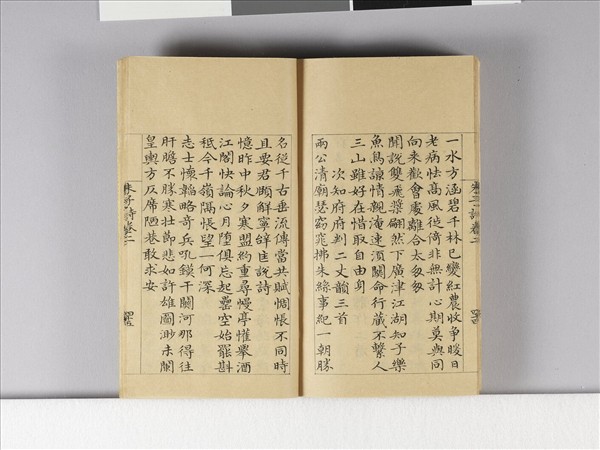 一水方涵碧千林已變紅農收爭暖日
老病怯高風徙倚非無計心期莫與同
向來歡會處離合太匆匆
聞說雙飛槳翩然下廣津江湖知子樂
魚鳥諒情親淹速須關命行藏不繫人
三山雖好在惜取自由身
次知府府判二丈韻三首
兩公清廟瑟窈窕拂朱絲事紀一朝勝
名從千古垂流傳當共賦惆悵不同時
且要君頗解寧辭匡說詩
憶昨中秋夕寒盟約重尋幔亭懽舉酒
江閣快論心月墮俱忘起罍空始罷斟
秪今千嶺隔悵望一何深
志士懷韜略奇兵吼鏌干關河那得往
肝膽不勝寒壯節悲如許雄圖渺未闌
皇輿方仄席陋巷敢求安
朱子詩卷二